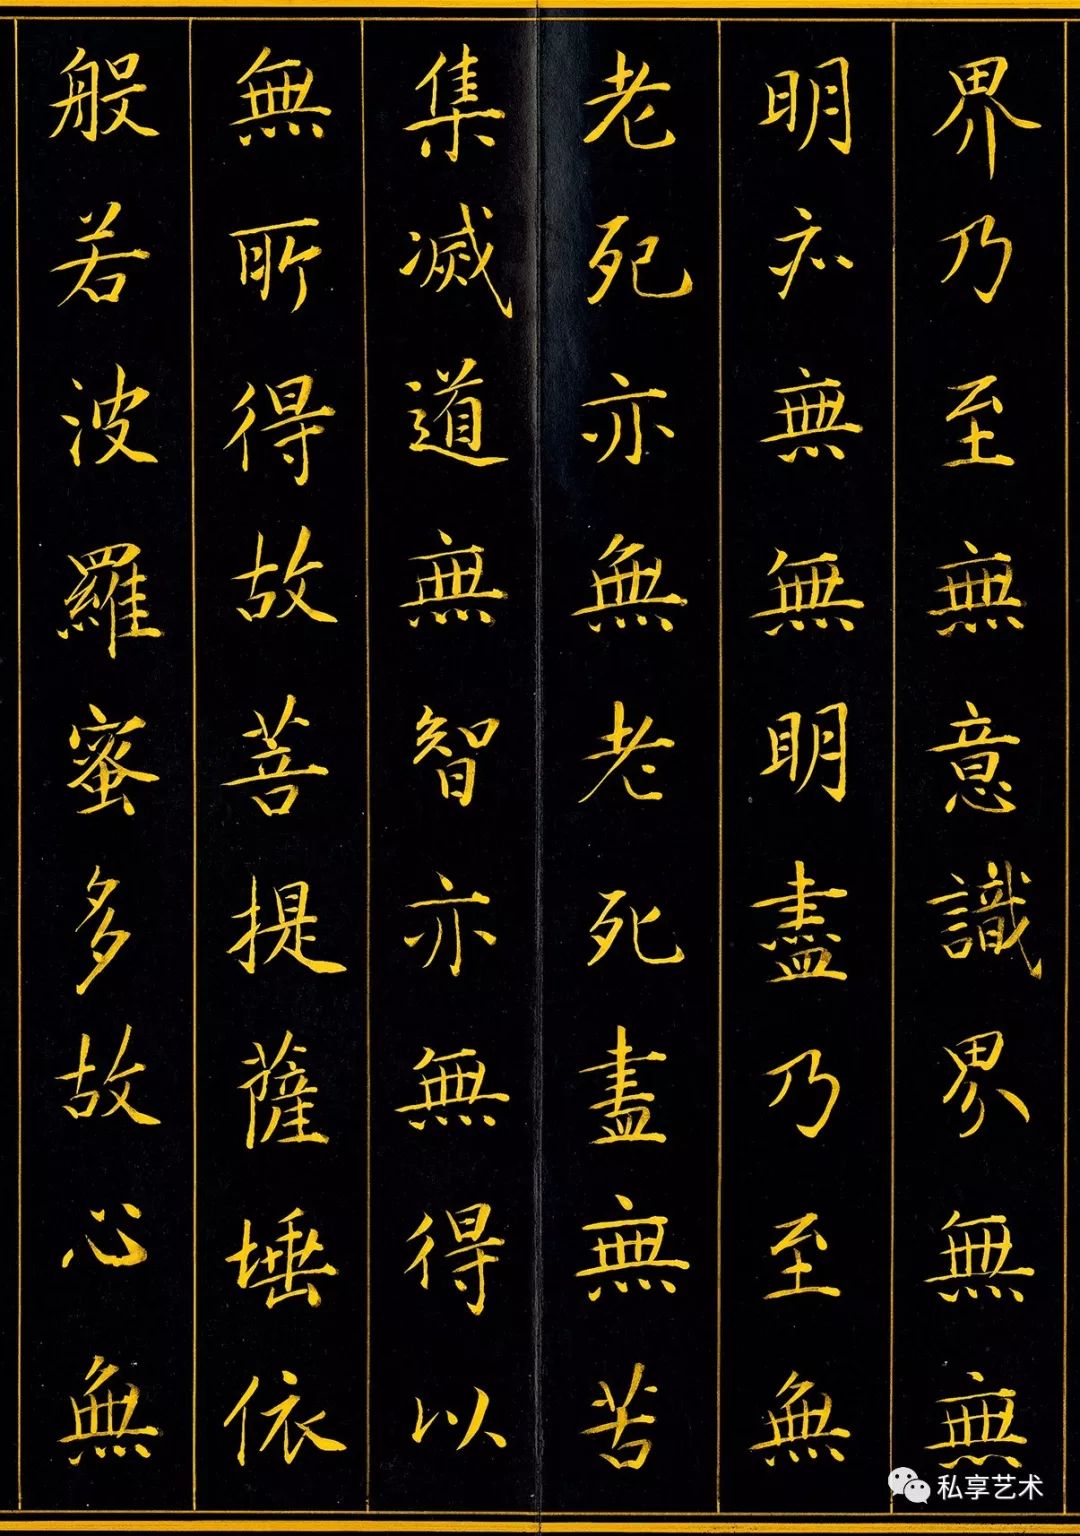 界乃至無意識界無無
明亦無無明盡乃至無
老死亦無老死盡無苦
集滅道無智亦無得以
無所得故菩提薩埵依
般若波羅蜜多故心無
私享艺术